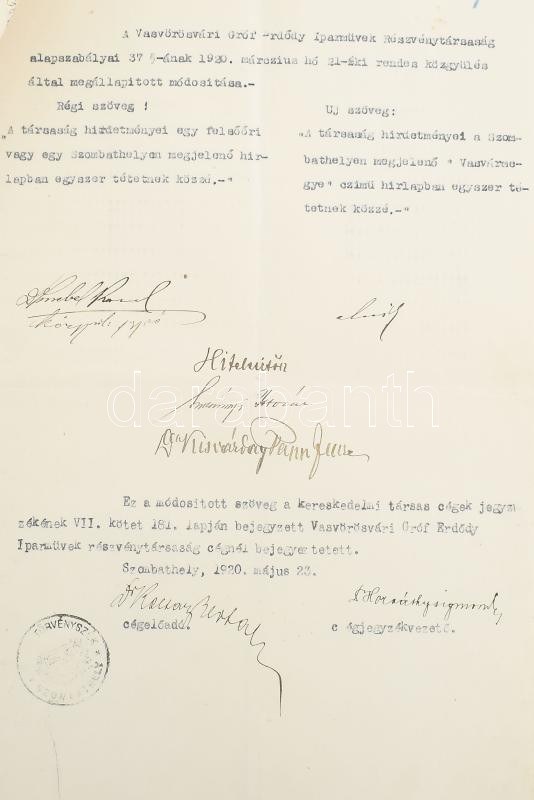 A Vasvörösvári Gróf Erdődy Iparmüvek Részvénytársaság
alapszabályai 37 §-ának 1920. márczius hó 21-éki rendes közgyülés
által megállapitott módositása.-
Régi szöveg !
„A társaság hirdetményei egy felsőőri
vagy egy Szombathelyen megjelenő hir-
lapban egyszer tétetnek közzé.-"
Uj szöveg:
„A társaság hirdetményei a Szom-
bathelyen megjelenő " Vasvárme-
gye" czimü hirlapban egyszer té-
tetnek közzé.-"
elnök
Hitelesitők
István
Dr Kisvárday Papp
darabanth
Ez a módositott szöveg a kereskedelmi társas cégek jegyz
zékének VII. kötet 181. lapján bejegyzett Vasvörösvári Gróf Erdődy
Iparmüvek részvénytársaság cégnél bejegyeztetett.
Szombathely, 1920. május 23.
Dr
cégelőadó.
Dr Horváth Zsigmond
cégjegyzékvezető.
TÖRVÉNYSZÉK